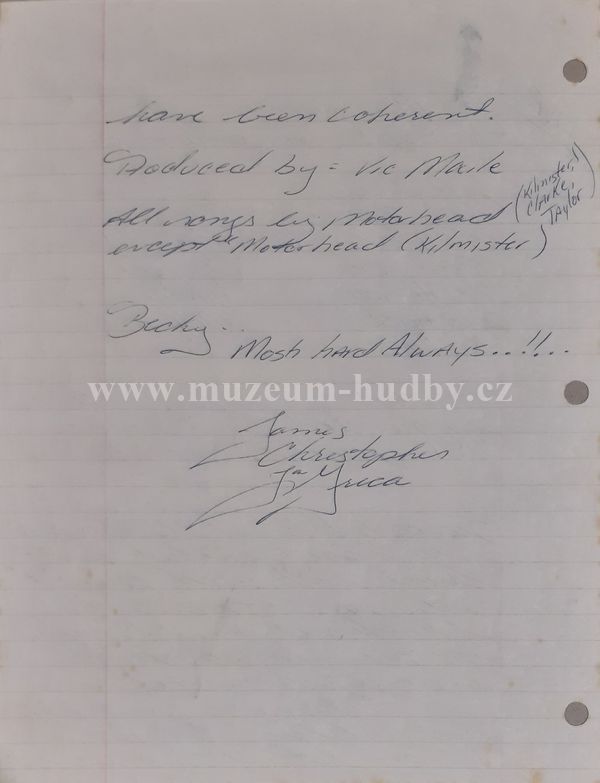 have been coherent.
Produced by = Vic Maile
All songs by Motorhead (Kilmister, Clarke, Taylor)
except "Motorhead (Kilmister)
Becky...
Mosh hard Always..!!...
www.muzeum-hudby.cz
James
Christopher